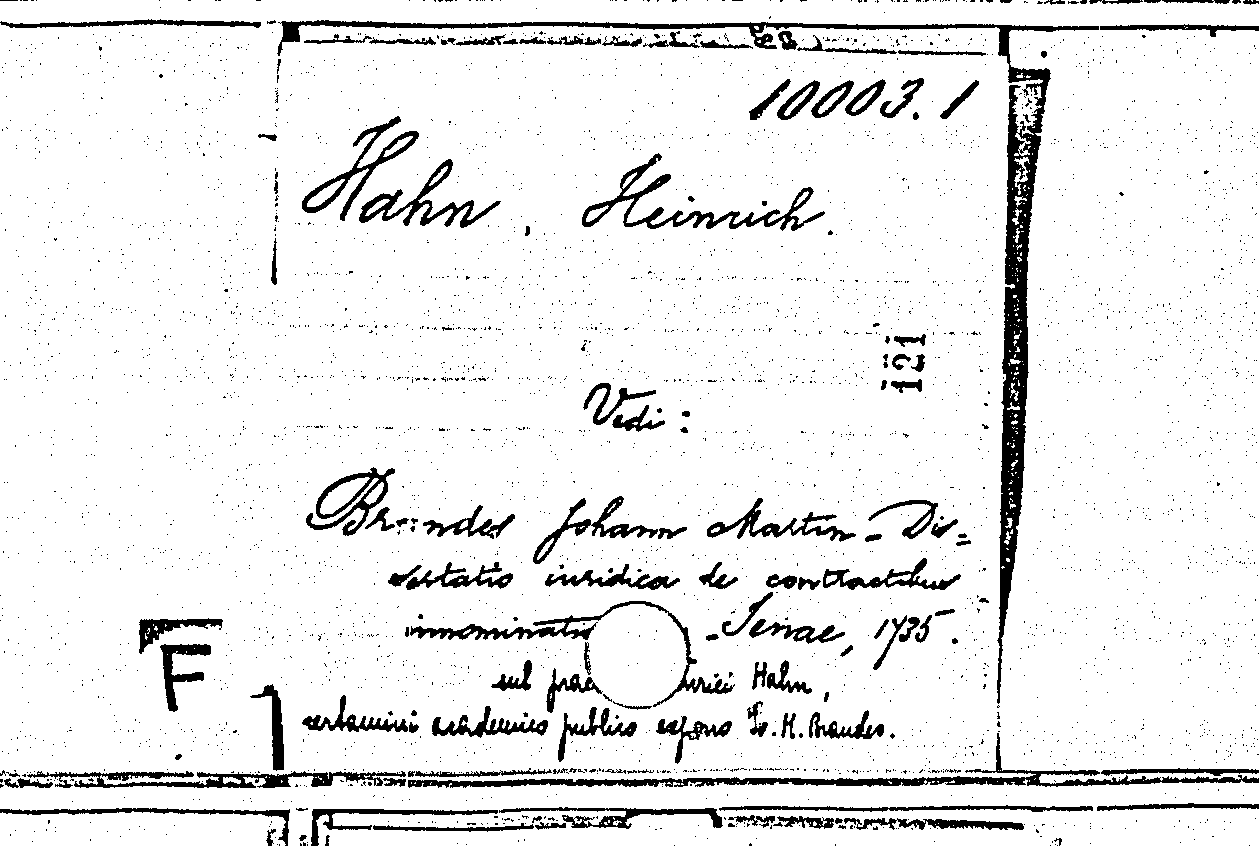 10003. 1
Hahn, Heinrich.
121
Vedi:
Brandes Johann Martin - Dis=
sertatio iuridica de contractibus
innominatis - Jenae, 1735.
sub prae Hahn,
certamini academico publico J. M. Brandes.
F